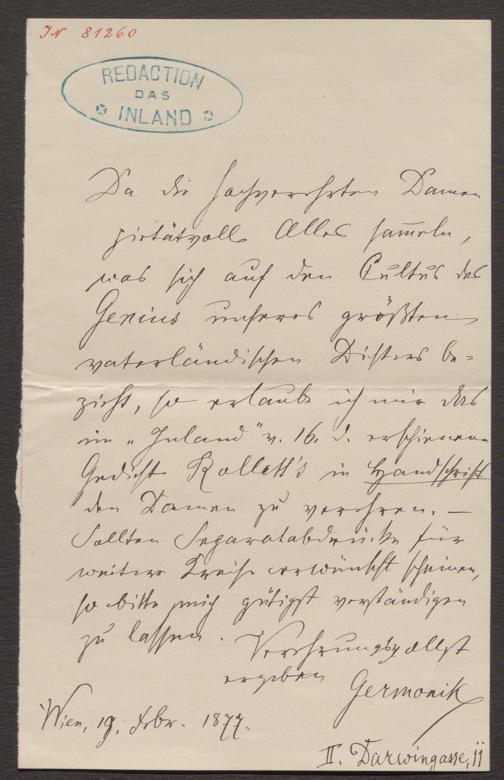 IN 81260
REDACTION
DAS
INLAND
Da die hochverehrten Damen
pietätvoll Alles sam̅eln,
was sich auf den Cultus des
Genius unseres größten
vaterländischen Dichters be-
zieht, so erlaube ich mir das
im „Inland" v. 16. d. erschienene
Gedicht Rollett's in Handschrift
den Damen zu verehren. —
Sollten Separatabdrücke für
weitere Kreise erwünscht scheinen,
so bitte mich gütigst verständigen
zu lassen.
Verehrungsvollst
ergeben
Germonik
Wien, 19. Febr. 1877.
II. Darwingasse, 11